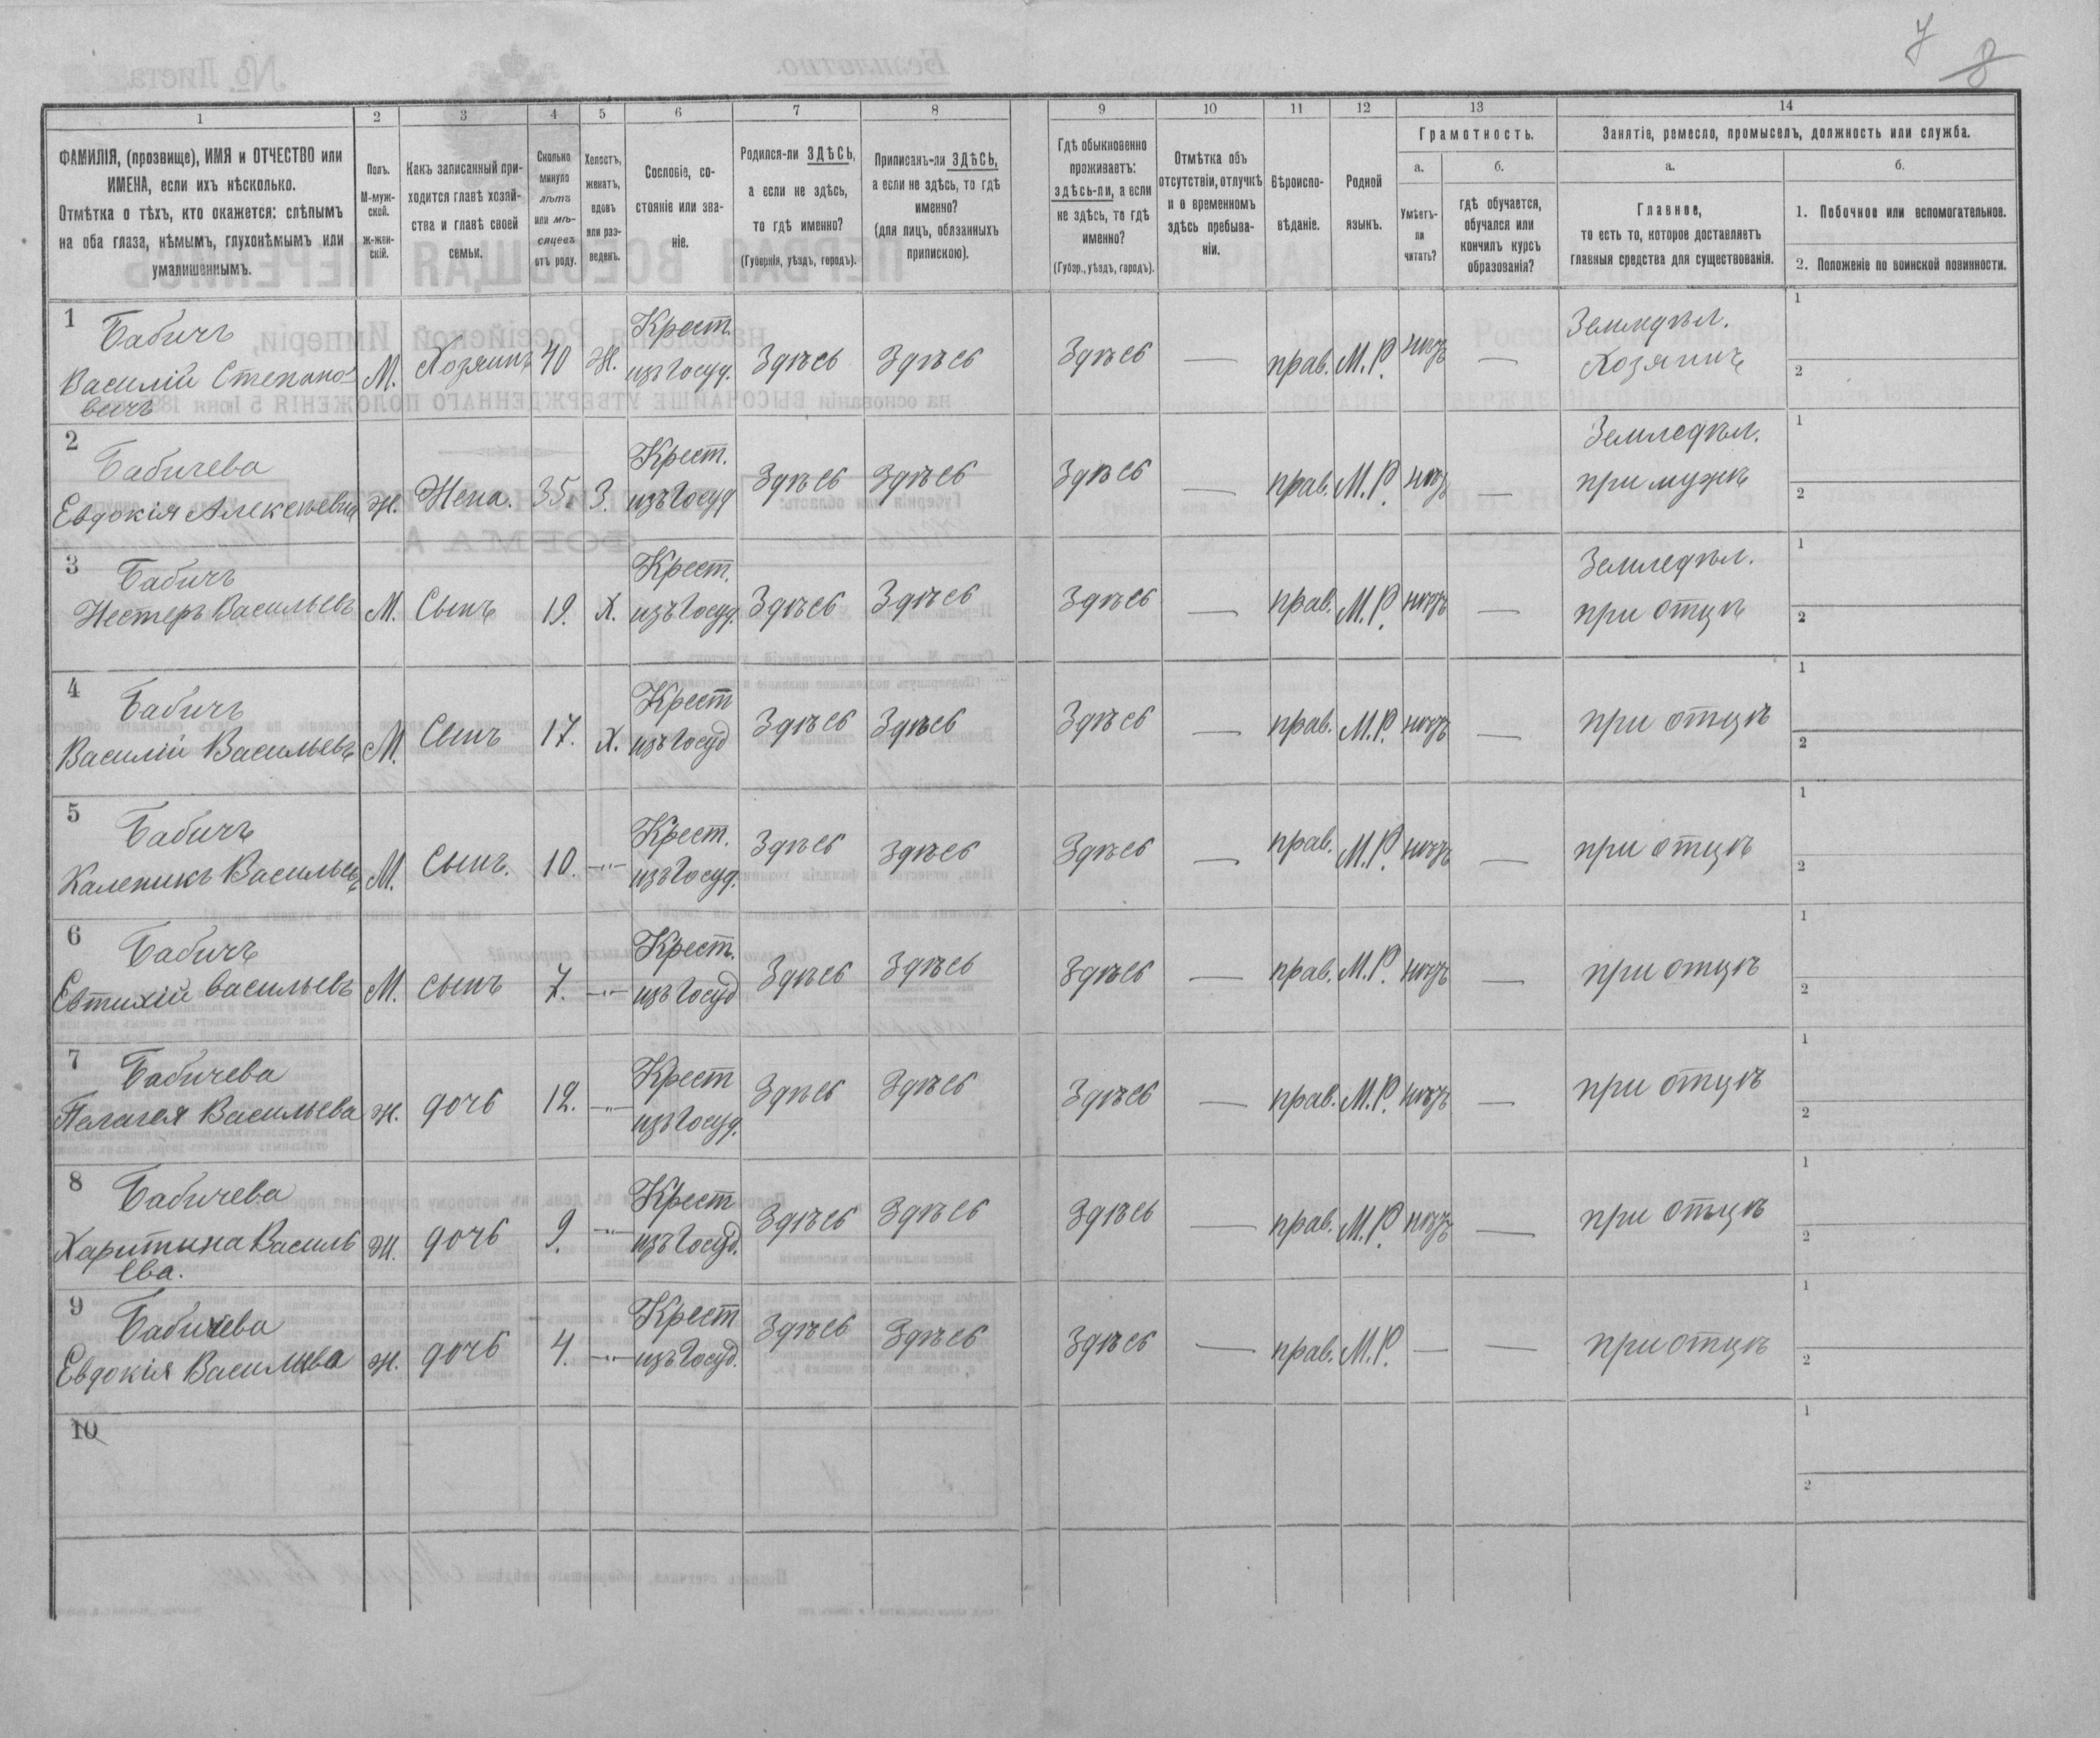 7
8
1 2 3 4 5 6 7 8 9 10 11 12 13 14
ФАМИЛІЯ, (прозвище), ИМЯ и ОТЧЕСТВО или
ИМЕНА, если ихъ нѣсколько.
Отмѣтка о тѣхъ, кто окажется: слѣпымъ
на оба глаза, нѣмымъ, глухонѣмымъ или
умалишеннымъ.
Полъ.
М-муж-
ской.
ж-жен-
скій.
Какъ записанный при-
ходится главѣ хозяй-
ства и главѣ своей
семьи.
Сколько
минуло
лѣтъ
или мѣ-
сяцевъ
отъ роду.
Холостъ,
женатъ,
вдовъ
или раз-
веденъ.
Сословіе, со-
стояніе или зва-
ніе.
Родился-ли ЗДѢСЬ,
а если не здѣсь,
то гдѣ именно?
(Губернія, уѣздъ, городъ).
Приписанъ-ли ЗДѢСЬ,
а если не здѣсь, то гдѣ
именно?
(для лицъ, обязанныхъ
припискою).
Гдѣ обыкновенно
проживаетъ:
здѣсь-ли, а если
не здѣсь, то гдѣ
именно?
(Губер., уѣздъ, городъ).
Отмѣтка объ
отсутствіи, отлучкѣ
и о временномъ
здѣсь пребыва-
ніи.
Вѣроиспо-
вѣданіе.
Родной
языкъ.
Грамотность.
а.
Умѣетъ-
ли
читать?
б.
гдѣ обучается,
обучался или
кончилъ курсъ
образованія?
Занятіе, ремесло, промыселъ, должность или служба.
а.
Главное,
то есть то, которое доставляетъ
главныя средства для существованія.
б.
1. Побочное или вспомогательное.
2. Положеніе по воинской повинности.
1 Бабичъ Крест. Земледѣл. 1
Василій Степано- М. Хозяинъ 40 Ж. изъ Госуд. Здѣсь Здѣсь Здѣсь — прав. М.Р. нѣтъ — Хозяинъ 2
вичъ
2 Бабичева Крест. Земледѣл. 1
Евдокія Алексѣевна ж. Жена. 35. З. изъ Госуд Здѣсь Здѣсь Здѣсь — прав. М.Р. нѣтъ — при мужѣ 2
3 Бабичъ Крест. Земледѣл. 1
Нестеръ Васильевъ М. Сынъ 19. Х. изъ Госуд. Здѣсь Здѣсь Здѣсь — прав. М.Р. нѣтъ — при отцѣ 2
4 Бабичъ Крест 1
Василій Васильевъ М. Сынъ 17. Х. изъ Госуд Здѣсь Здѣсь Здѣсь — прав. М.Р. нѣтъ — при отцѣ 2
5 Бабичъ Крест. 1
Каленикъ Васильевъ М. Сынъ. 10. -„- изъ Госуд. Здѣсь Здѣсь Здѣсь — прав. М.Р. нѣтъ — при отцѣ 2
6 Бабичъ Крест. 1
Евтихій Васильевъ М. сынъ 7. -„- изъ Госуд Здѣсь Здѣсь Здѣсь — прав. М.Р. нѣтъ — при отцѣ 2
7 Бабичева Крест 1
Пелагея Васильева ж. дочь 12. -„- изъ Госуд. Здѣсь Здѣсь Здѣсь — прав. М.Р. нѣтъ — при отцѣ 2
8 Бабичева Крест 1
Харитина Василь ж. дочь 9. -„- изъ Госуд. Здѣсь Здѣсь Здѣсь — прав. М.Р. нѣтъ — при отцѣ 2
ева.
9 Бабичева Крест 1
Евдокія Васильева ж. дочь 4. -„- изъ Госуд. Здѣсь Здѣсь Здѣсь — прав. М.Р. — — при отцѣ 2
10 1
2